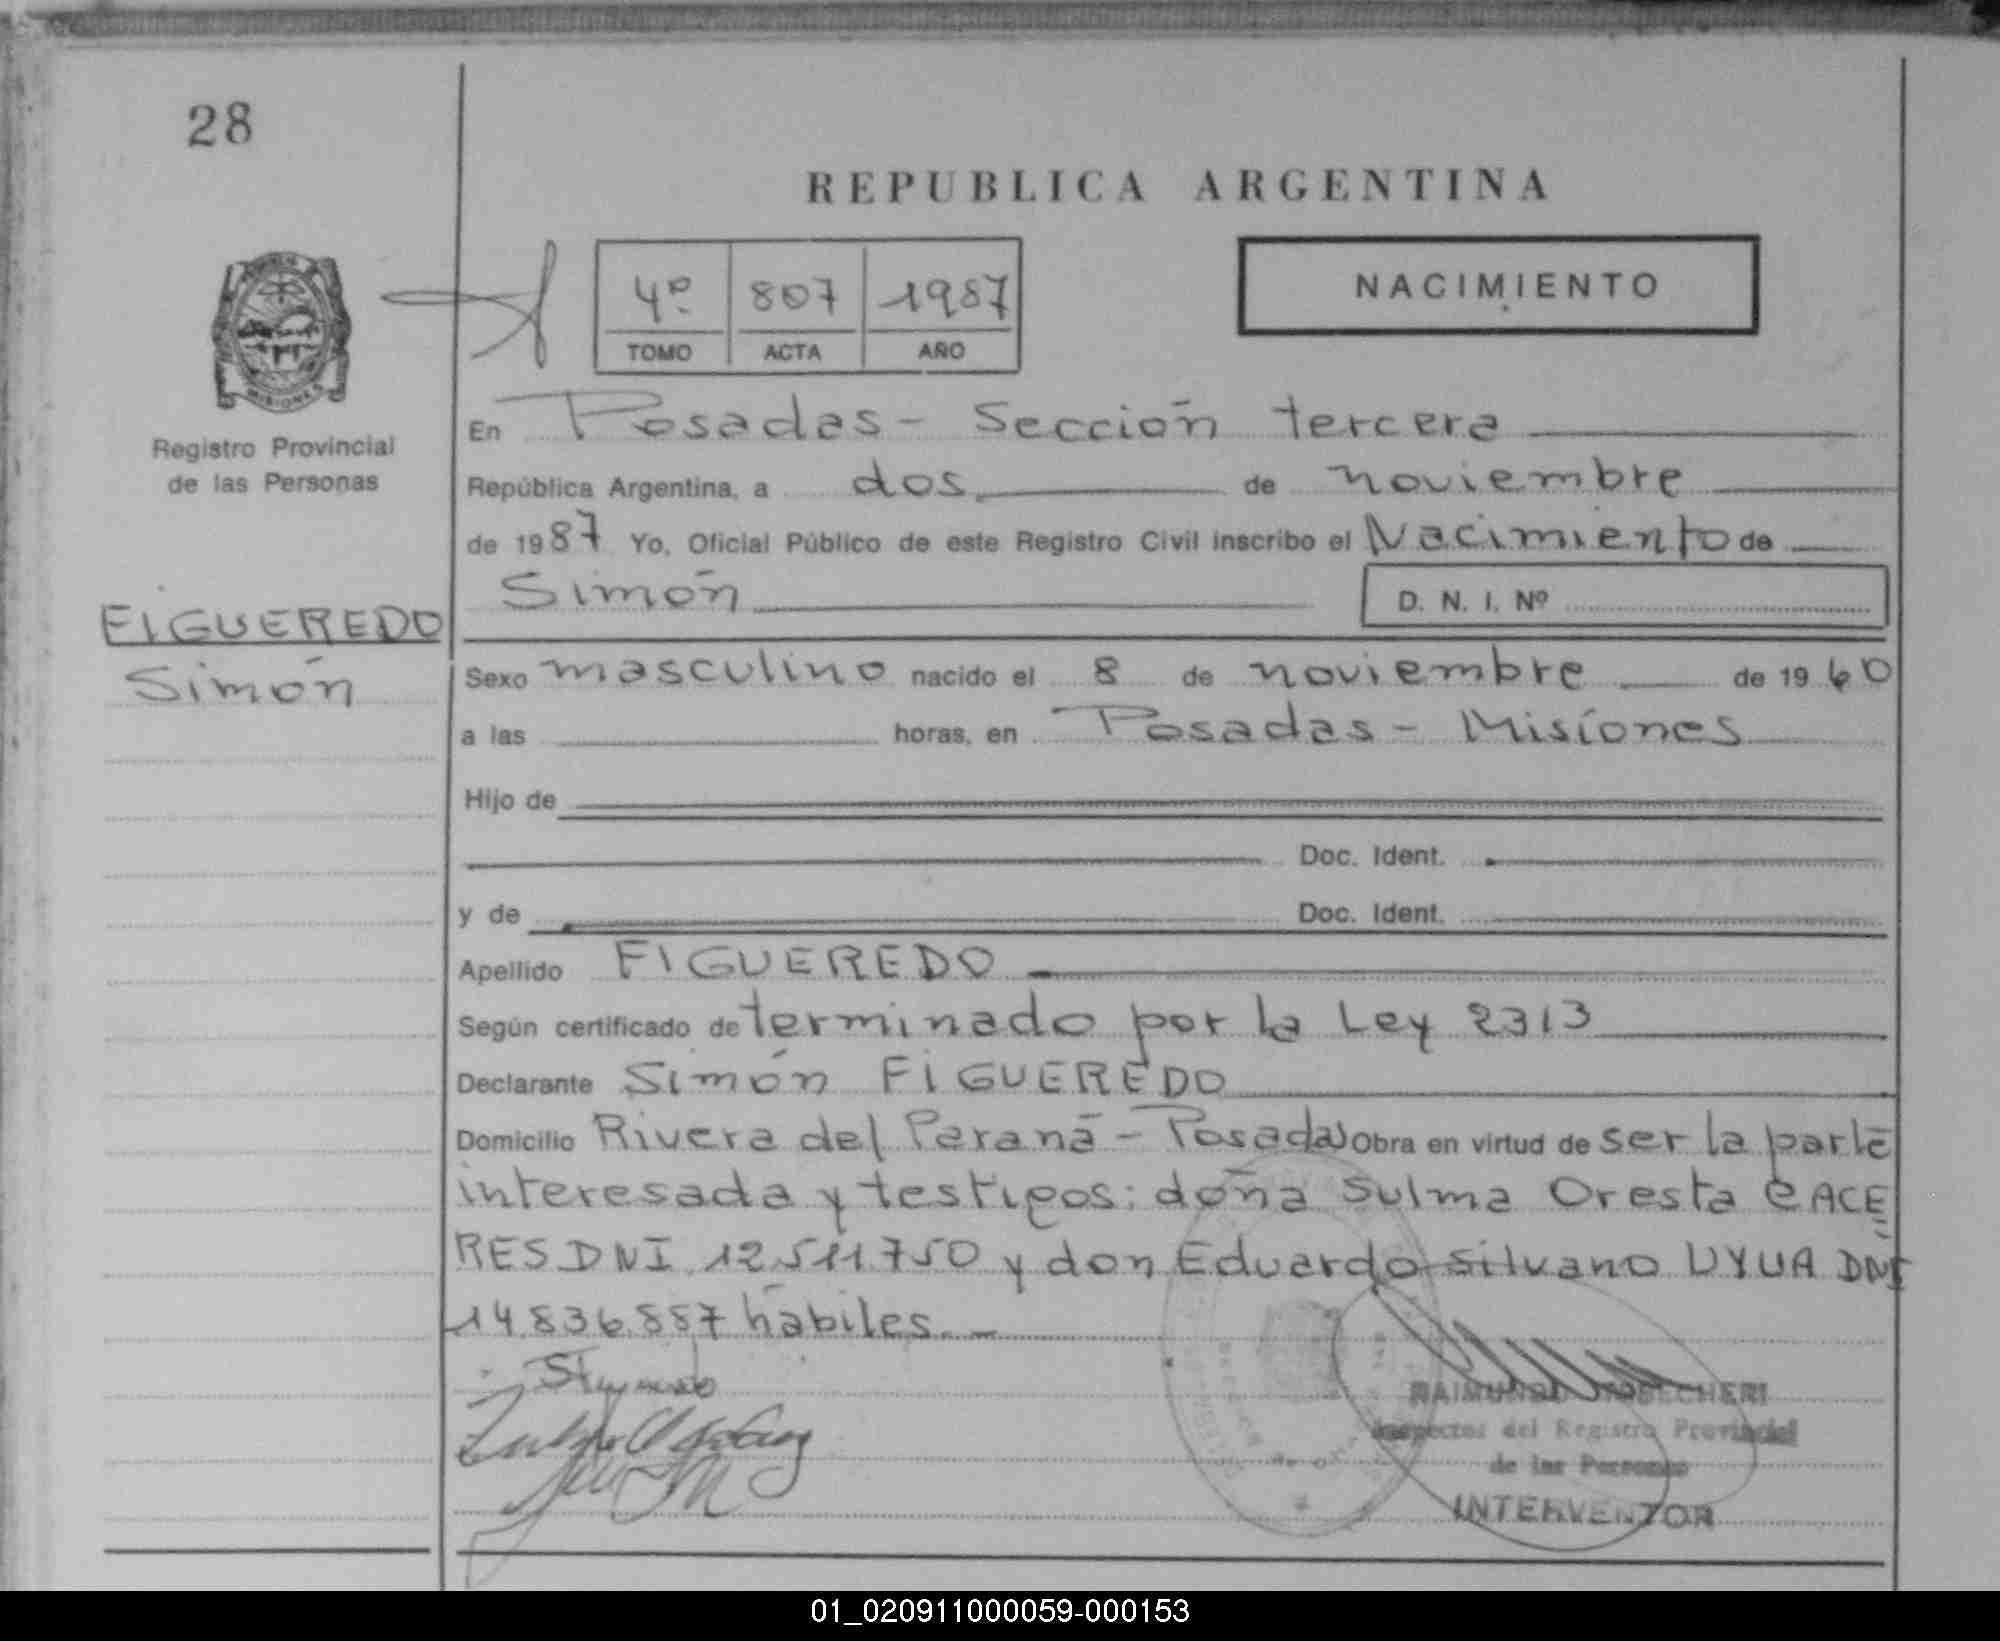 28
REPUBLICA ARGENTINA
4º 807 1987
TOMO ACTA AÑO
NACIMIENTO
MISIONES
Registro Provincial
de las Personas
En Posadas - Sección tercera
República Argentina, a dos de noviembre
de 1987 Yo, Oficial Público de este Registro Civil inscribo el Nacimiento de
Simón D. N. I. Nº
FIGUEREDO
Simón
Sexo masculino nacido el 8 de noviembre de 1960
a las horas, en Posadas - Misiones
Hijo de
Doc. Ident.
y de Doc. Ident.
Apellido FIGUEREDO
Según certificado de terminado por la Ley 2313
Declarante Simón FIGUEREDO
Domicilio Rivera del Paraná - Posadas Obra en virtud de ser la parte
interesada y testigos: doña Sulma Oresta CACE
RES DNI 12.511.750 y don Eduardo Silvano UYUA DNI
14.836.887 hábiles. -
RAIMUNDO
Inspector del Registro Provincial
de las Personas
INTERVENTOR
01_020911000059-000153